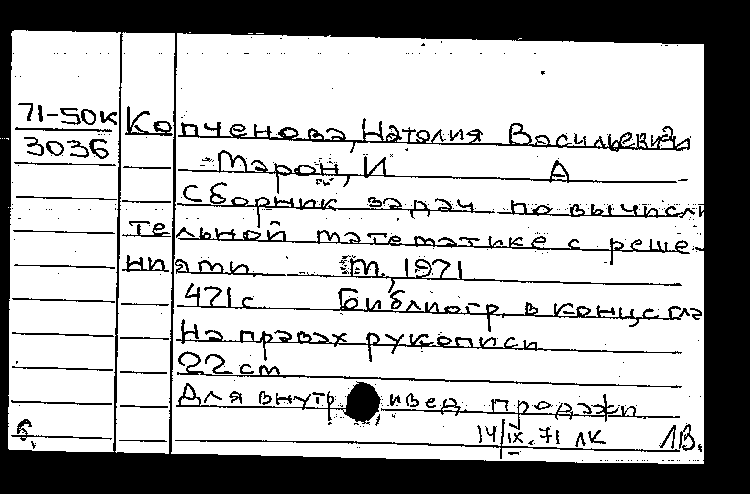 71-50к
3036
Копченова, Наталия Васильевна
Марон, И А
Сборник задач по вычисли
тельной математике с реше-
ниями М., 1971
471 с Библиогр. в конце гла
На правах рукописи
22 см
Для внутр ивед. продажи
14/IX.71 ЛК ЛВ.
б.